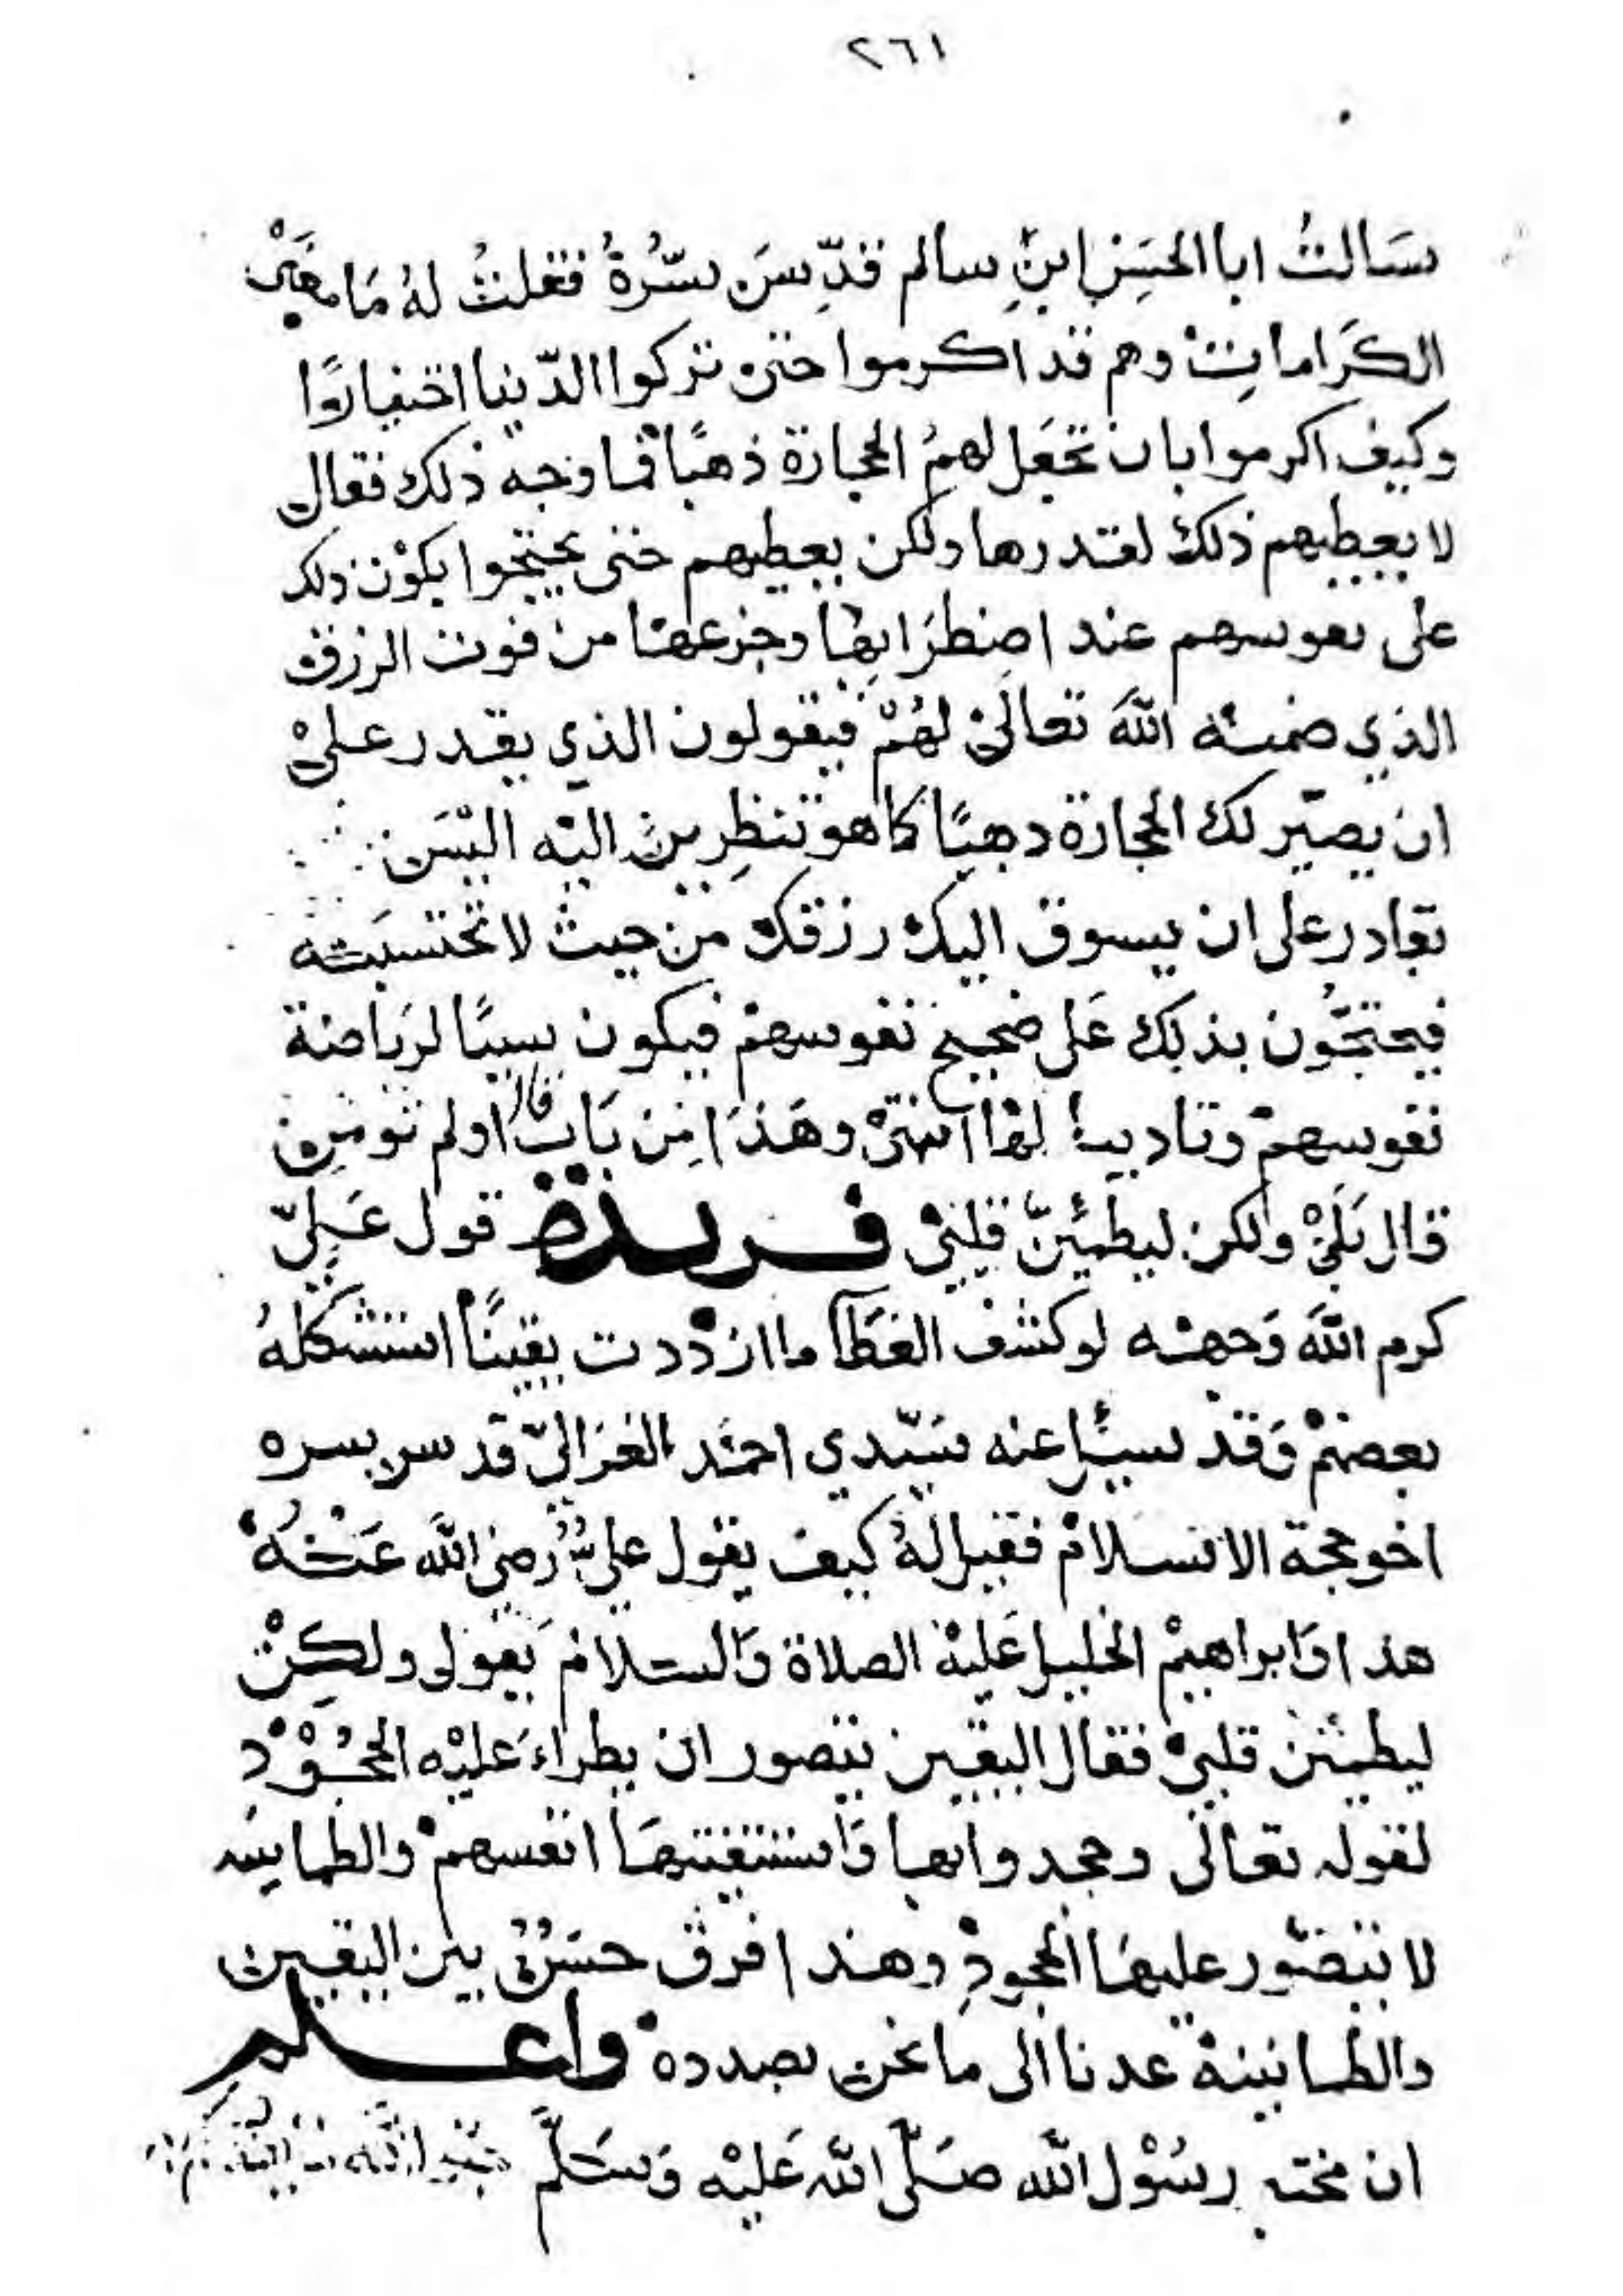 ٢٦١
سَالتُ ابا الحسَنِ ابنِ سالم قدِّسَ سِّرُهُ فقلتُ لهُ مَا معنىْ
الكرَاماتِ وهم قد اكرموا حتى تركوا الدّنيا اختيارًا
وكيف اكرموا بان تجعَل لهمُ الحجارة ذهبًا فما وجه ذلك فقال
لا يعطيهم ذلك لقدرها ولكن يعطيهم حتى يحتجوا بكوْن ذلك
على نفوسهم عند اضطرَابها وجزعها من فوت الرزق
الذي ضمنه اللهَ تعالىْ لهُمْ فيقولون الذي يقدر علىْ
ان يصيّر لك الحجارة دهبًا كما هو تنظرين اليْه اليْسَ
بقادر على ان يسوق اليك رزقك من حيث لا تحتسبَه
فيحتجُّون بذلك عَلى ضجيج نفوسهمْ فيكون سببًا لريَاضة
نفوسهمْ وتاديبا لها انتهىْ وهَذَا مِن بَاب قال اولم تومِن
قال بَلَىْ ولكن ليطمئِنّ قلبىْ فريدة قول عَليّ
كرم اللهَ وَجهه لو كشف الغطَآ ما ازددت يقينًا استشكلهُ
بعضهمْ وَقدْ سيُل عنه سَيّدي احمَد الغزاليّ قدس سره
اخو حجة الاسلامْ فقيل لهُ كيف يقول عليٌّ رُضي اللَّه عَنْهُ
هذا وَابراهيمْ الخليل عَليهْ الصلاة وَالسلامْ يَقول ولكِنْ
ليطمئن قلبىْ فقال اليقين يتصور ان يطراءَ عليْه الجُحُوْدْ
لقوله تعالىَ وجحدوا بها وَاستيقنتهَا انفسهمْ والطمانينه
لا يتصّور عليهَا الجحودِ وهذا فرق حسَنٌ بين اليقين
والطمانينة عدنا الى ما نحن بصدده واعلم
ان محبه رسُوْل اللّه صَلّى اللّه عَليْه وَسَلَّم